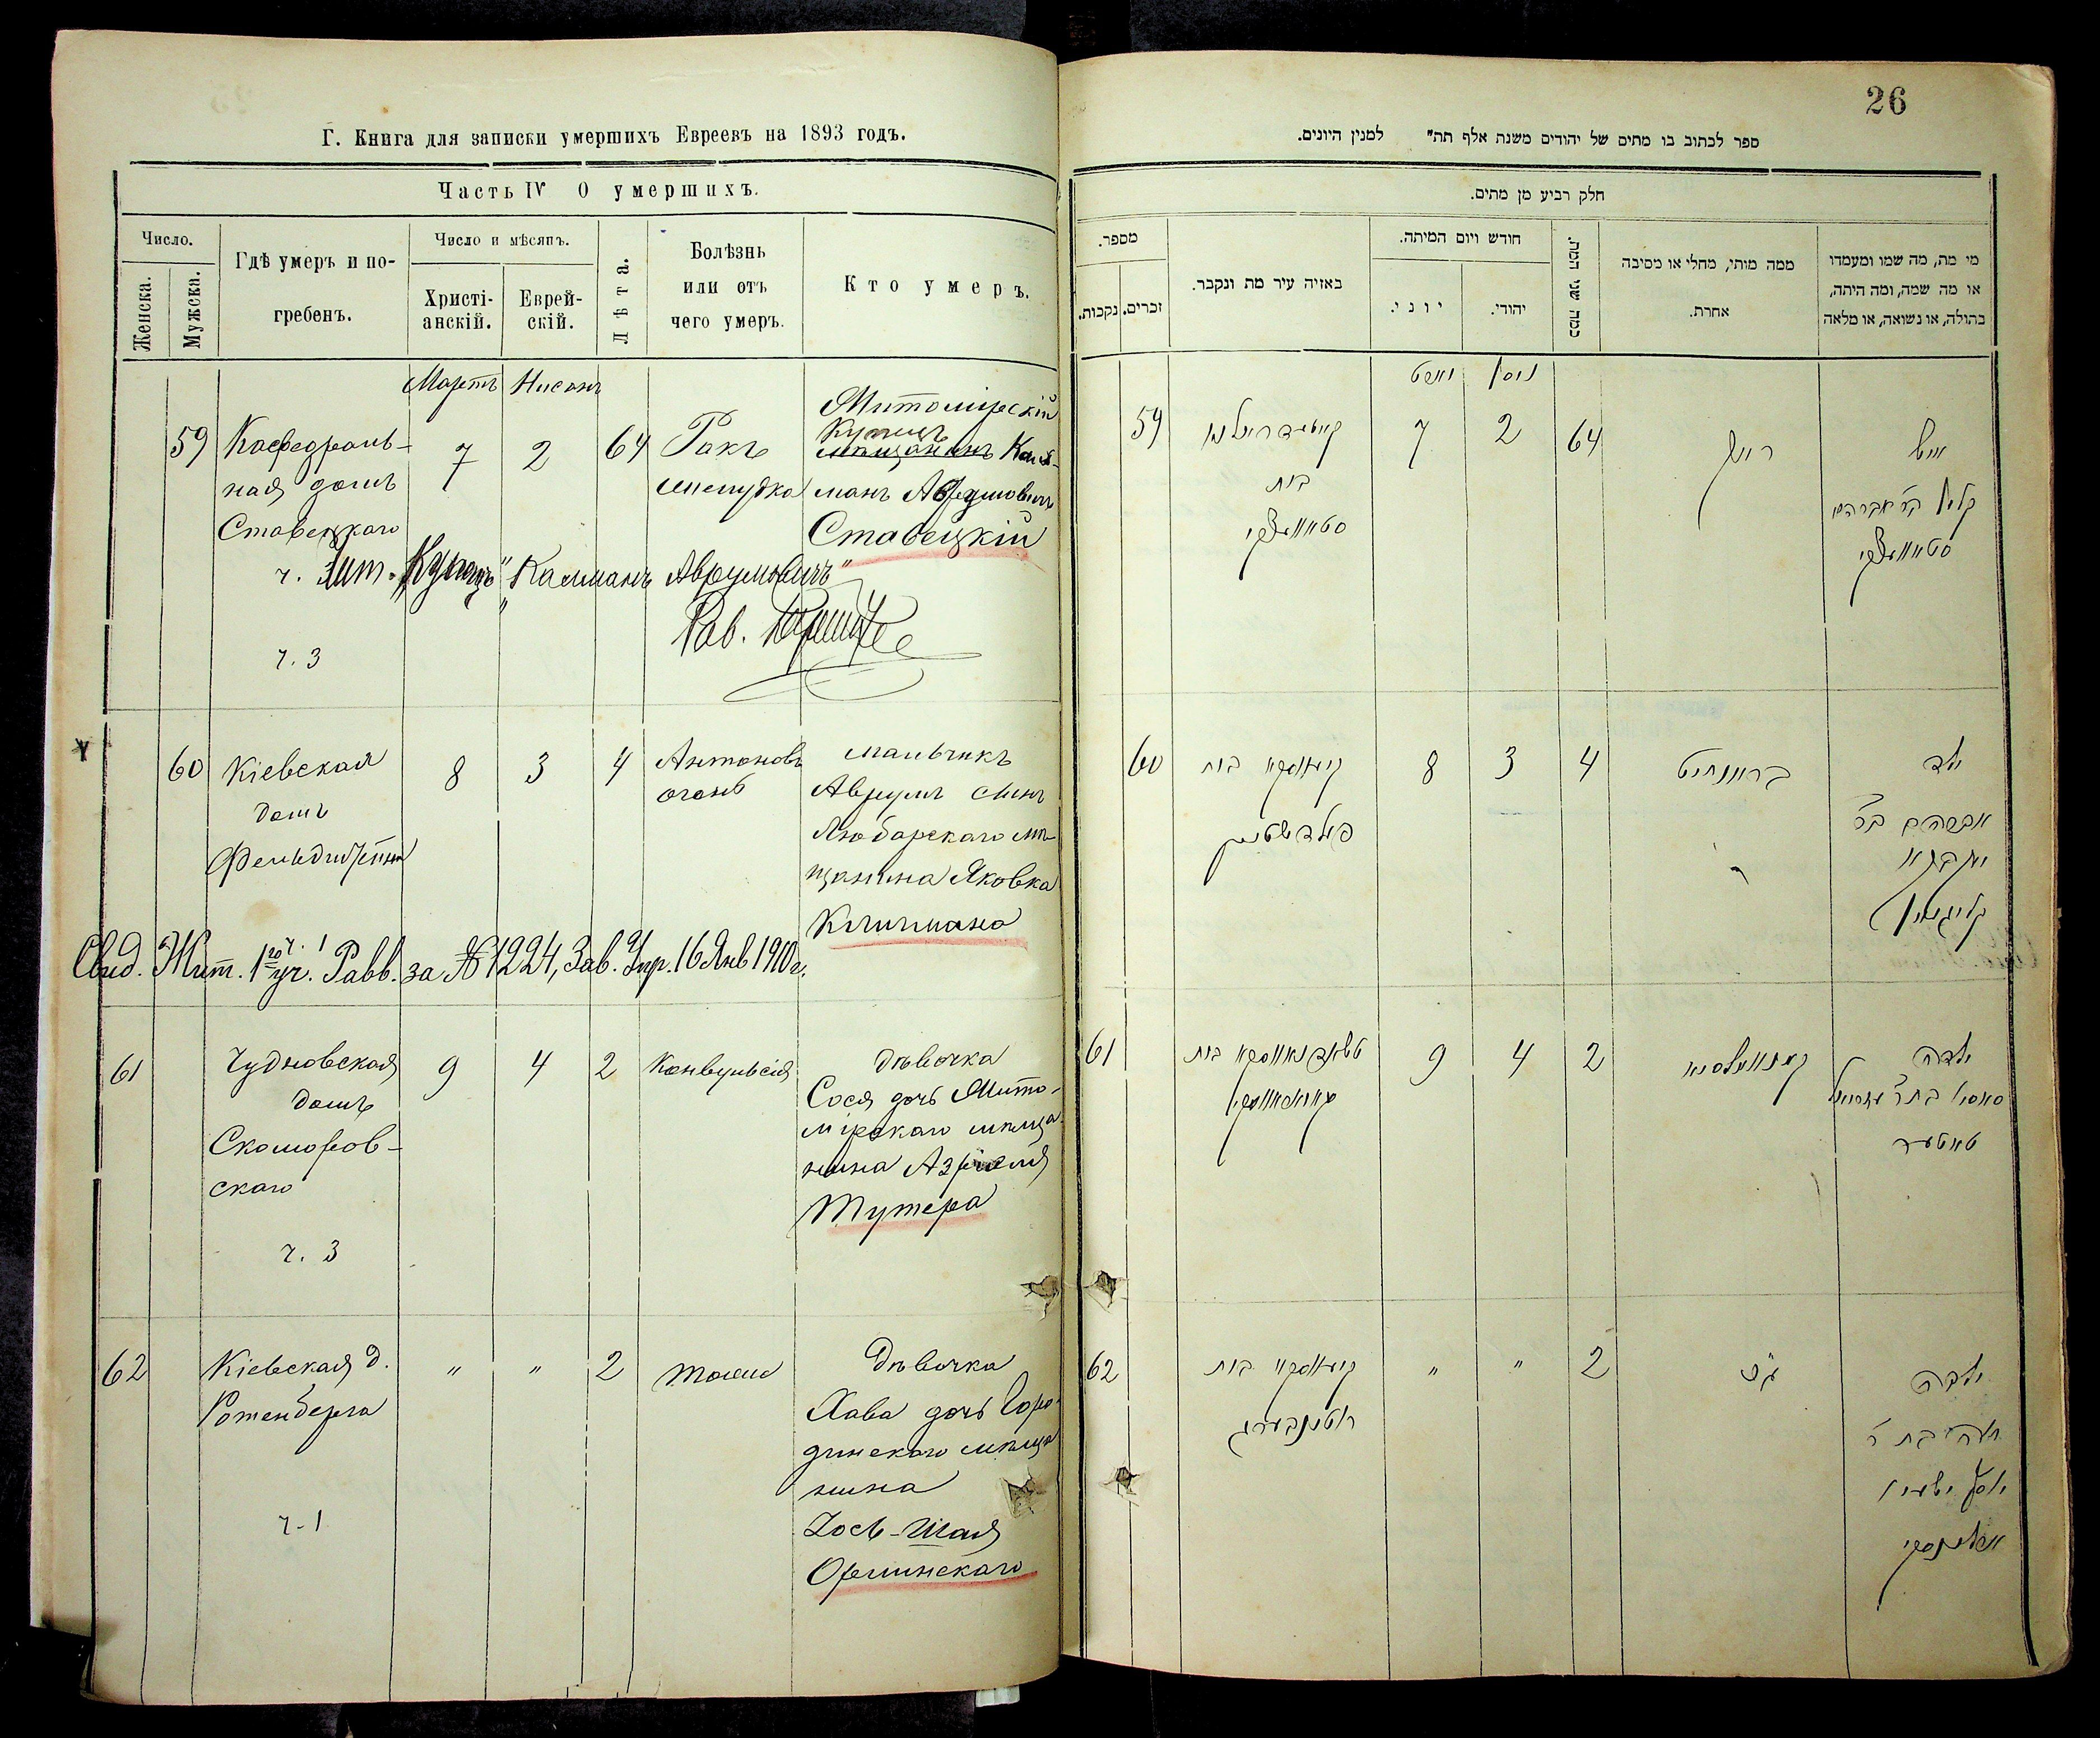 Г. Книга для записки умершихъ Евреевъ на 1893 годъ.
Часть IV О умершихъ.
Число.
Женска.
Мужска.
Гдѣ умеръ и по-
гребенъ.
Число и мѣсяцъ.
Христі-
анскій.
Еврей-
скій.
Лѣта.
Болѣзнь
или отъ
чего умеръ.
Кто умеръ.
Мартъ Нисанъ
59
Кафедраль-
ная домъ
Ставецкаго
7
2
64
Ракъ
желудка
Житомірскій
Купецъ
мѣщанинъ Каль-
манъ Аврумовичъ
Ставецкій
ч. Жит. "Купецъ" "Калманъ Аврумовичъ"
Рав.
ч. 3
60
Кіевская
домъ
Фельдштейна
8
3
4
Антоновъ
огонь
мальчикъ
Аврумъ сынъ
Любарскаго мѣ-
щанина Яковка
Кличмана
ч. 1
Свид. Жит. 1го уч. Равв. за № 1224, Зав. Упр. 16 Янв 1910 г.
61
Чудновская
домъ
Скоморов-
скаго
9
4
2
Конвульсія
дѣвочка
Сося дочь Жито-
мірскаго мѣща-
нина Азріеля
Тутера
ч. 3
62
Кіевская д.
Ротенберга
"
"
2
тоже
дѣвочка
Хава дочь Горо-
динскаго мѣща
нина
Іось-Шая
Орлинскаго
ч-1
26
ספר לכתוב בו מתים של יהודים משנת אלף תת" למנין היונים.
חלק רביע מן מתים.
מספר.
נקבות.
זכרים.
באזיה עיר מת ונקבר.
חודש ויום המיתה.
יוני.
יהודי.
כמה שני המת.
ממה מותי, מחלי או מסיבה
אחרת.
מי מת, מה שמו ומעמדו
או מה שמה, ומה היתה,
בתולה, או נשואה, או מלאה
מארט ניסן
59
קאטעדראלנע
בית
סטאוועצקי
7
2
64
ראק
איש
קלמן בר אברהם
סטאוועצקי
60
קיעווסקיי בית
פעלדשטיין
8
3
4
ילד
אברהם בר
יעקב
קליגמאן
61
טשודנאווסקיי בית
סקאמאראווסקי
9
4
2
קאנוואולסיע
ילדה
סאסיל בת ר עזריאל
טוטער
62
קיעווסקיי בית
ראטנבערג
"
"
2
ג"כ
ילדה
חוה בת ר
יוסף ישעי'
ארלינסקי